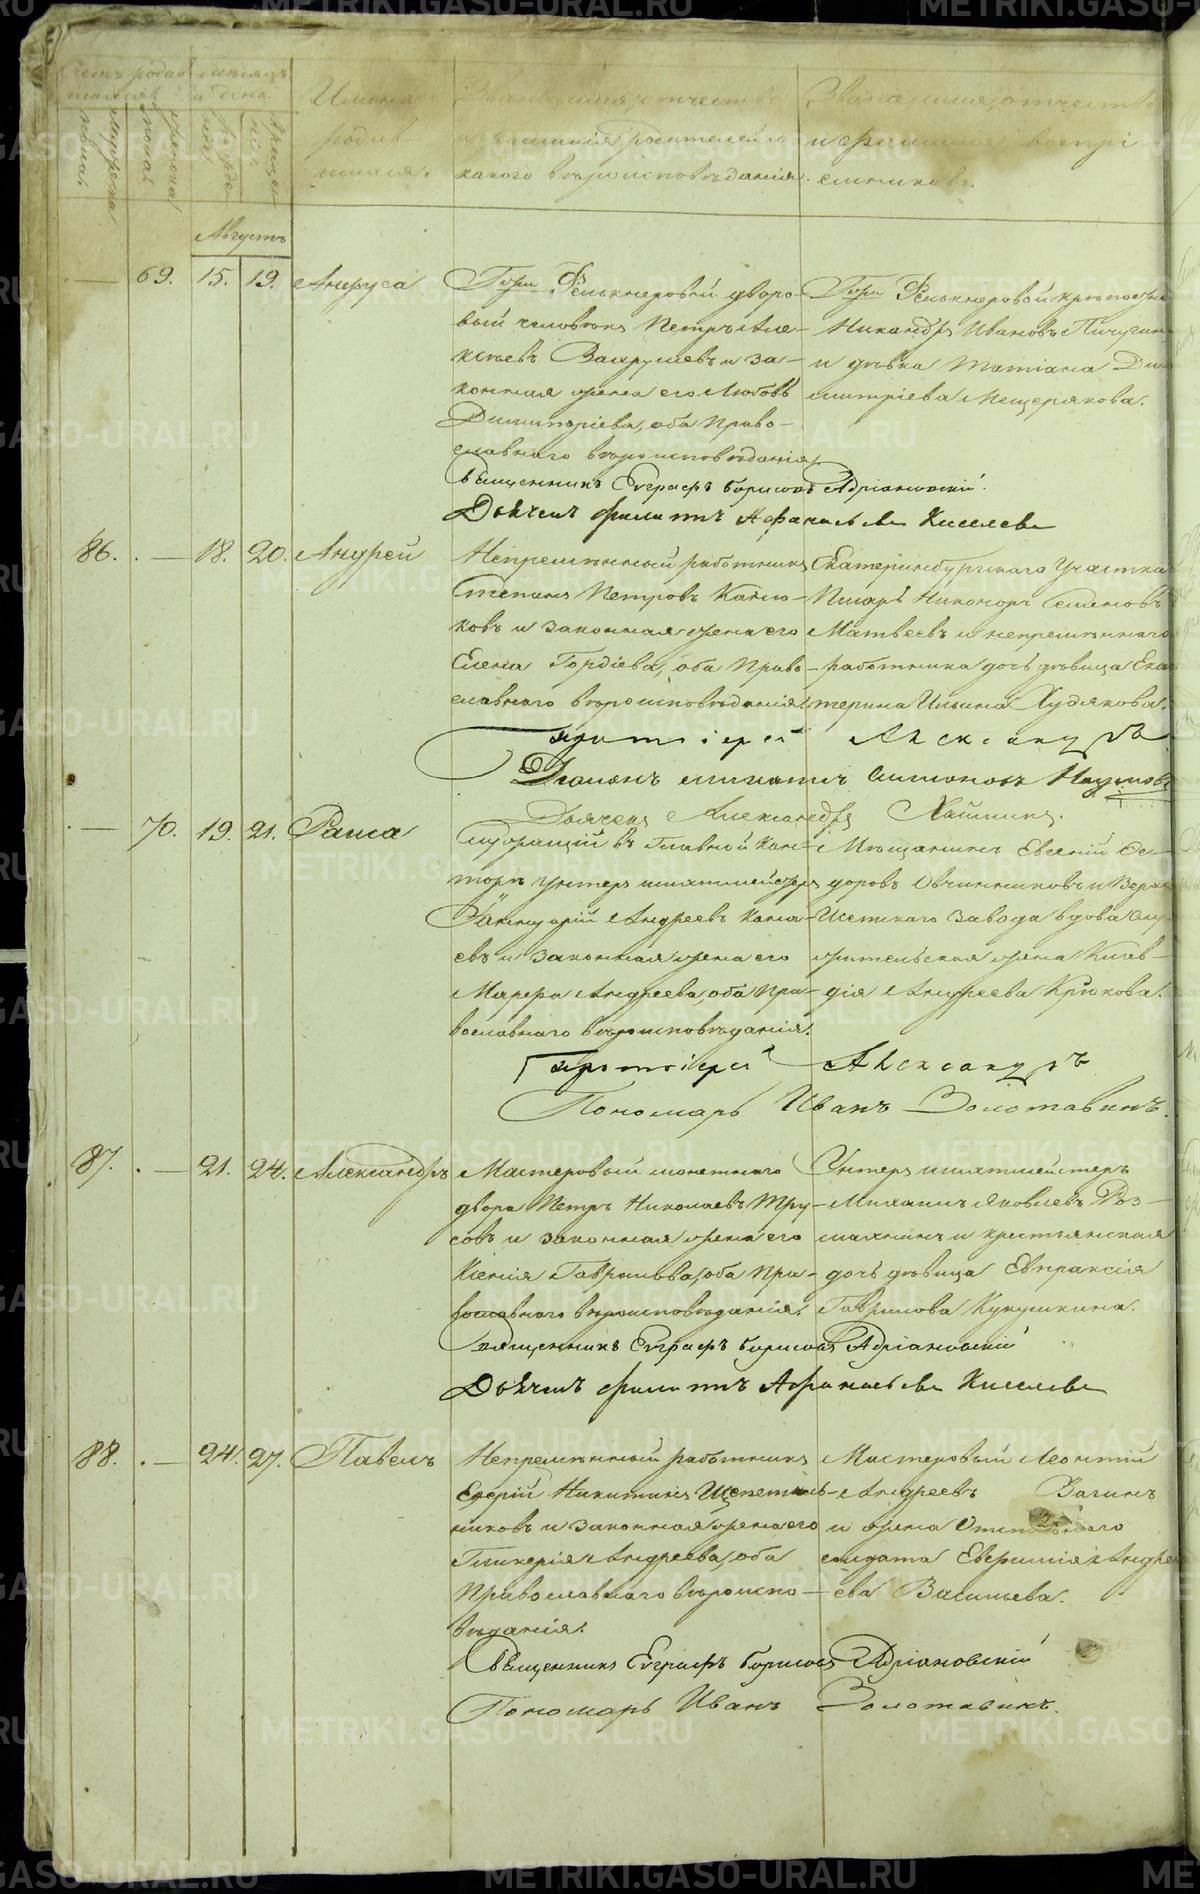 Счетъ родив-
шихся.
Мѣсяцъ
и день.
Имена
родив-
шихся.
Званіе, имя, отчество
и фамилія родителей и
какого вѣроисповѣданія.
Званіе, имя, отчество
и фамилія воспрі-
емниковъ.
Августъ
— 69. 15. 19.
Г-жи дворо-
вый человѣкъ Петръ Але-
ксѣевъ Вахрушевъ и за-
конная жена его Любовь
Димитріева, оба право-
славнаго вѣроисповѣданія.
Г-жи
Никандръ Ивановъ Пичугинъ
и дѣвка Татіана Ди-
митріева Мещерякова.
Священникъ Евграфъ Борисовъ Адріановскій.
Дьячекъ Филиппъ Афанасьевъ Киселевъ
86. — 18. 20. Андрей
Непремѣнный работникъ
Степанъ Петровъ
ковъ и законная жена его
Елена Гордіева, оба право-
славнаго вѣроисповѣданія.
Екатеринбургскаго Участка
Писарь Никоноръ Семеновъ
Матвеевъ и непремѣннаго
работника дочь дѣвица Ека-
терина Ильина Худякова.
Протоіерей Александръ
Діаконъ Симоновъ Наумовъ
Дьячекъ Александръ
— 70. 19. 21. Раиса
Служащій въ Главной Кон-
торѣ унтеръ шихтмейстеръ
Андреевъ
евъ и законная жена его
Марѳа Андреева, оба пра-
вославнаго вѣроисповѣданія.
Мѣщанинъ Евгеній Ѳе-
доровъ Овчинниковъ и Верхъ
Исетскаго завода вдова слу-
жительская жена Клав-
дія Андреева Крюкова.
Протоіерей Александръ
Пономарь Иванъ Золотавинъ.
87. — 21. 24. Александръ
Мастеровый монетнаго
двора Петръ Николаевъ Тру-
совъ и законная жена его
Ксенія Гаврилова, оба пра-
вославнаго вѣроисповѣданія.
Унтеръ шихтмейстеръ
Михаилъ Яковлевъ Роз-
махнинъ и крестьянская
дочь дѣвица Евпраксія
Гаврилова Кукушкина.
Священникъ Евграфъ Борисовъ Адріановскій
Дьячекъ Филиппъ Афанасьевъ Киселевъ
88. — 24. 27. Павелъ
Непремѣнный работникъ
Никитинъ Щепетиль-
никовъ и законная жена его
Гликерія Андреева, оба
Православнаго вѣроиспо-
вѣданія.
Мастеровый Леонтій
Андреевъ Вагинъ
и жена
солдата Евфимія Андре-
ева Васильева.
Священникъ Евграфъ Борисовъ Адріановскій
Пономарь Иванъ Золотавинъ.
METRIKI.GASO-URAL.RU